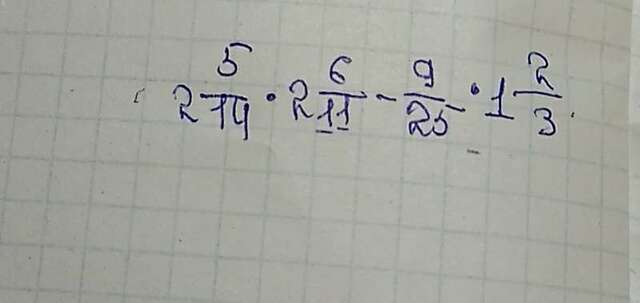 2 5/14 · 2 6/11 - 9/25 · 1 2/3